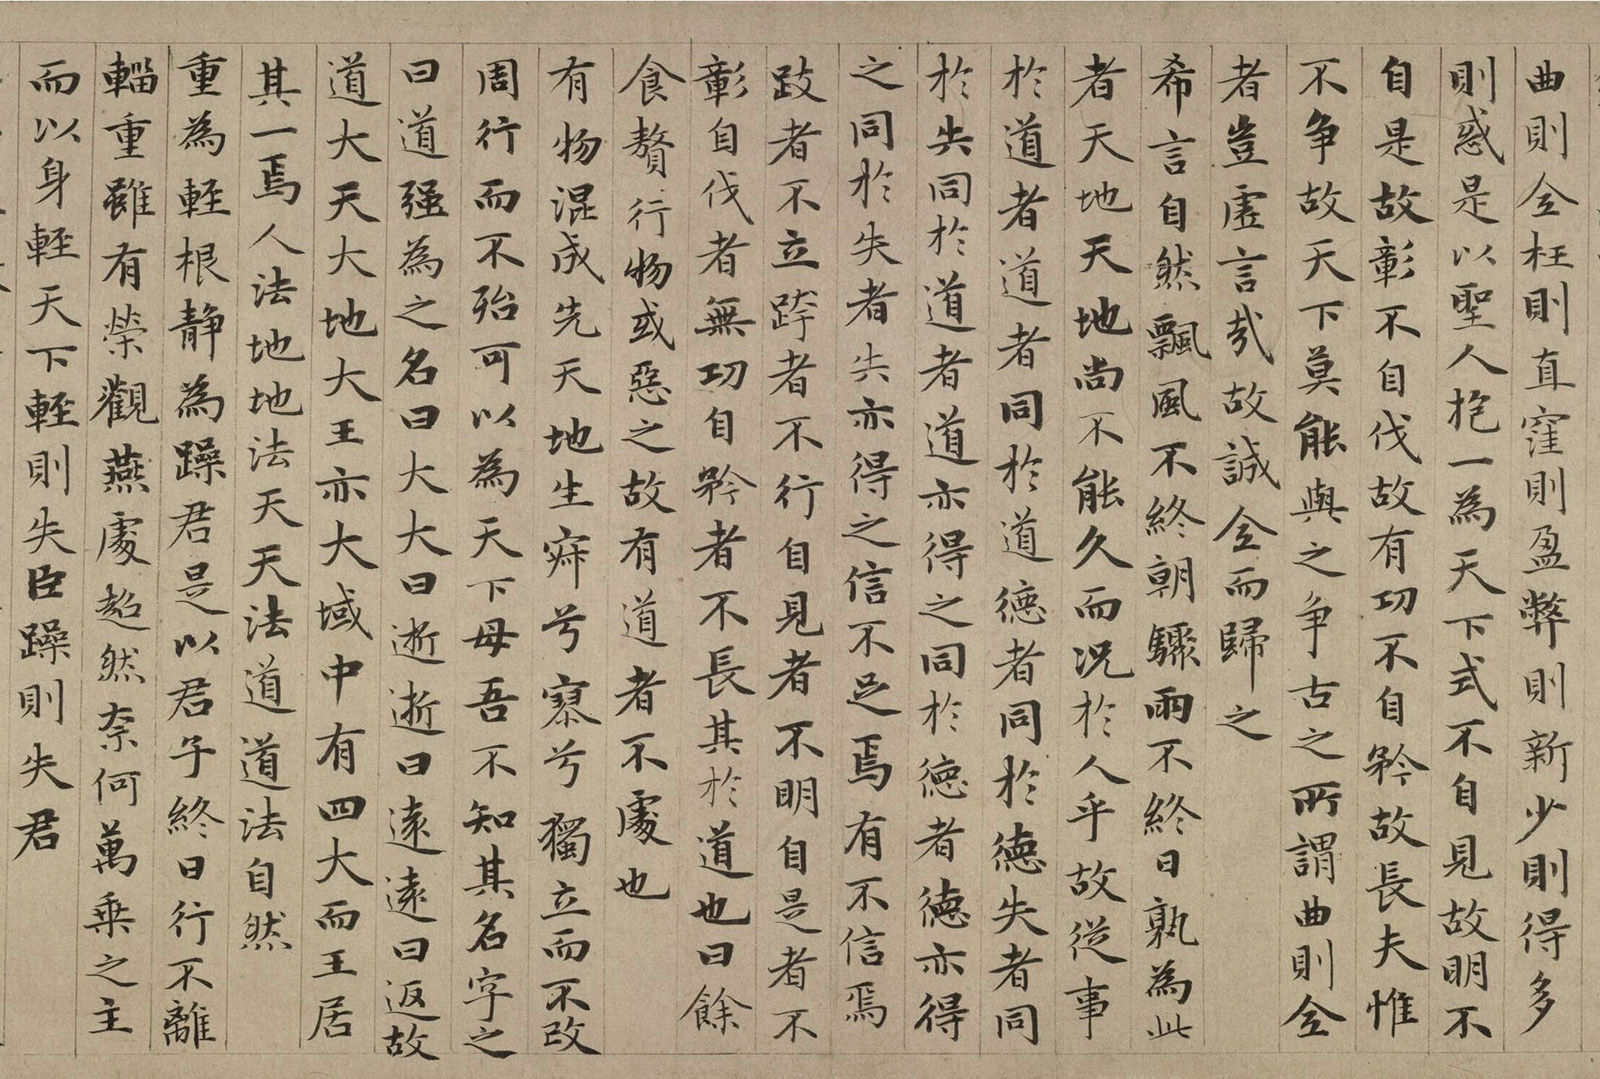 曲則全枉則直窪則盈弊則新少則得多
則惑是以聖人抱一為天下式不自見故明不
自是故彰不自伐故有功不自矜故長夫惟
不争故天下莫能與之争古之所謂曲則全
者豈虛言哉故誠全而歸之
希言自然飄風不終朝驟雨不終日孰為此
者天地天地尚不能久而況於人乎故從事
於道者道者同於道德者同於德失者同
於失同於道者道亦得之同於德者德亦得
之同於失者失亦得之信不足焉有不信焉
跂者不立跨者不行自見者不明自是者不
彰自伐者無功自矜者不長其於道也曰餘
食贅行物或惡之故有道者不處也
有物混成先天地生寂兮寥兮獨立而不改
周行而不殆可以為天下母吾不知其名字之
曰道强為之名曰大大曰逝逝曰遠遠曰返故
道大天大地大王亦大域中有四大而王居
其一焉人法地地法天天法道道法自然
重為輕根静為躁君是以君子終日行不離
輜重雖有榮觀燕處超然奈何萬乘之主
而以身輕天下輕則失臣躁則失君